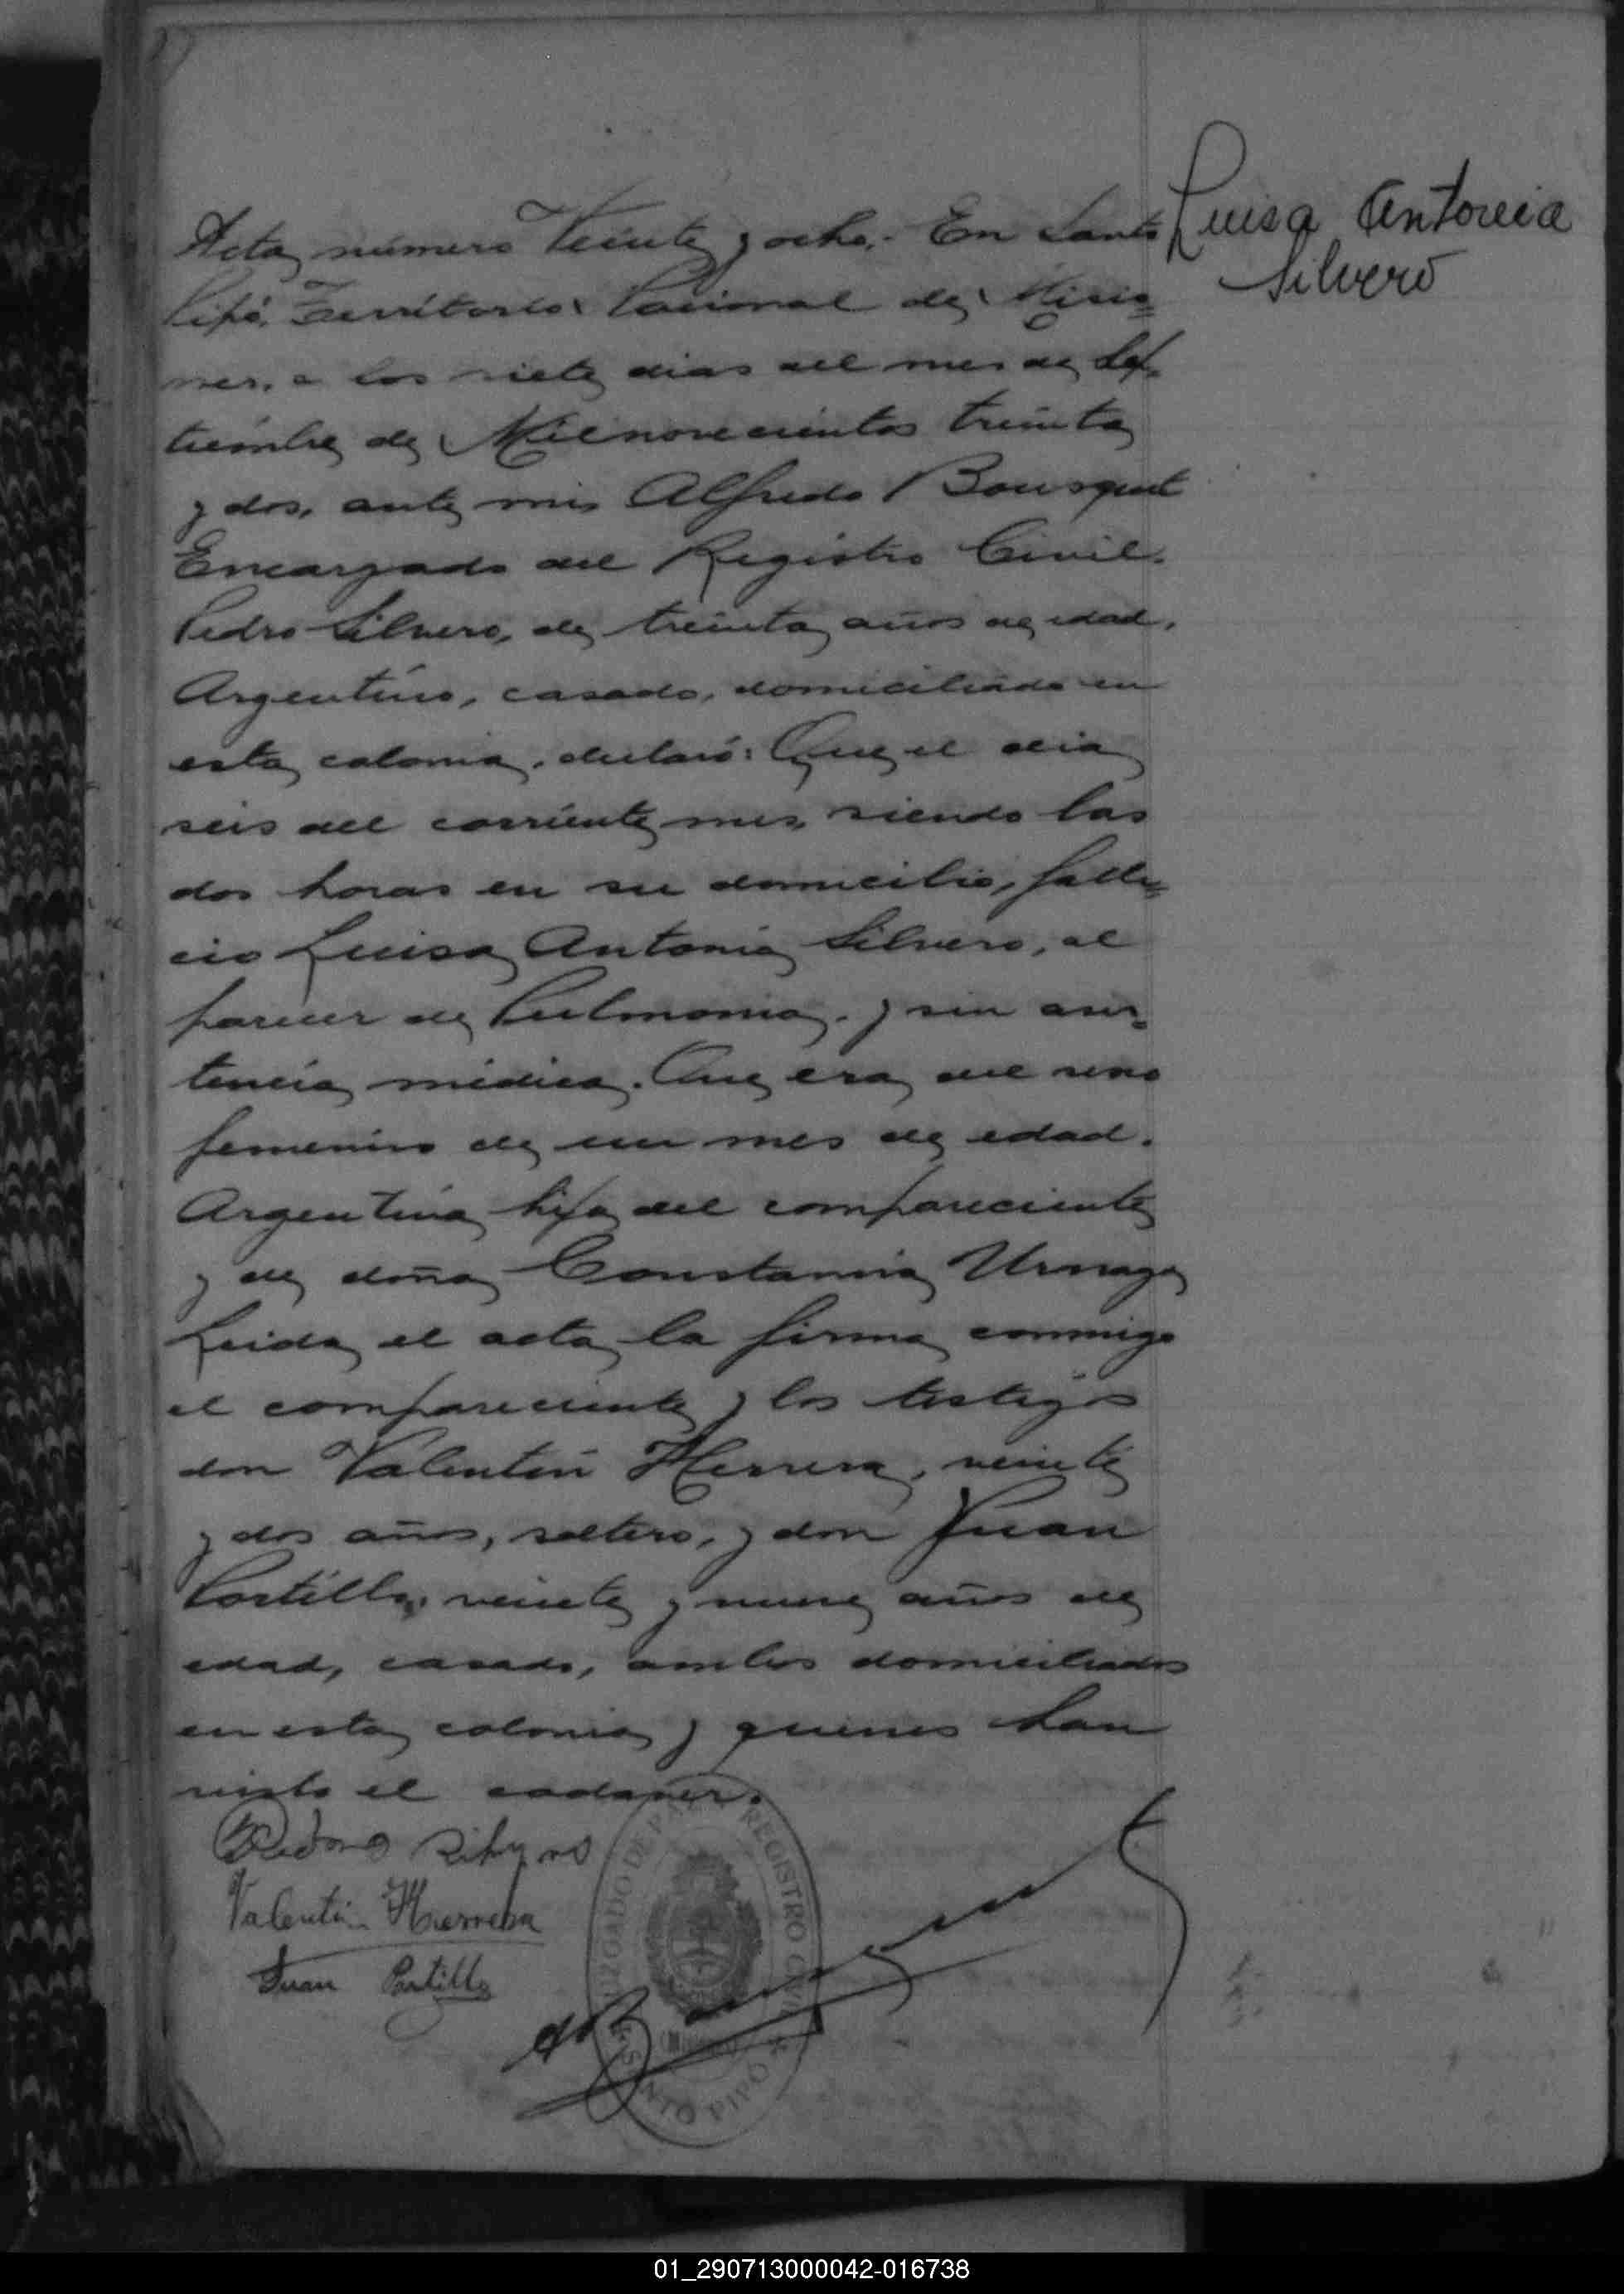 Luisa Antonia
Silvero
Acta número Veinte y ocho.- En Santo
Pipó, Territorio Nacional de Misio=
nes, a los siete dias del mes de Sep-
tiembre de Milnovecientos treinta
y dos, ante mi, Alfredo Bousquet
Encargado del Registro Civil.
Pedro Silvero, de treinta años de edad,
Argentino, casado, domiciliado en
esta colonia, declaró: Que el dia
seis del corriente mes, siendo las
dos horas en su domicilio, falle=
cio Luisa Antonia Silvero, al
parecer de Pulmonia, y sin asis-
tencia médica. Que era del sexo
femenino de un mes de edad.
Argentina hija del compareciente
y de doña Constancia
Leida el acta la firma conmigo
el compareciente y los testigos
don Valentin Herrera, veinte
y dos años, soltero, y don Juan
Portillo, veinte y nueve años de
edad, casado, ambos domiciliados
en esta colonia y quienes han
visto el cadaver.
Pedro
Valentin Herrera
Juan Portillo
JUZGADO DE PAZ Y REGISTRO CIVIL
SANTO PIPO
(Misiones)
01_290713000042-016738